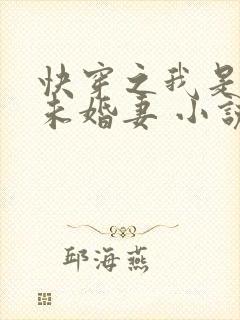 快穿之我是
未婚妻 小說
邱海燕